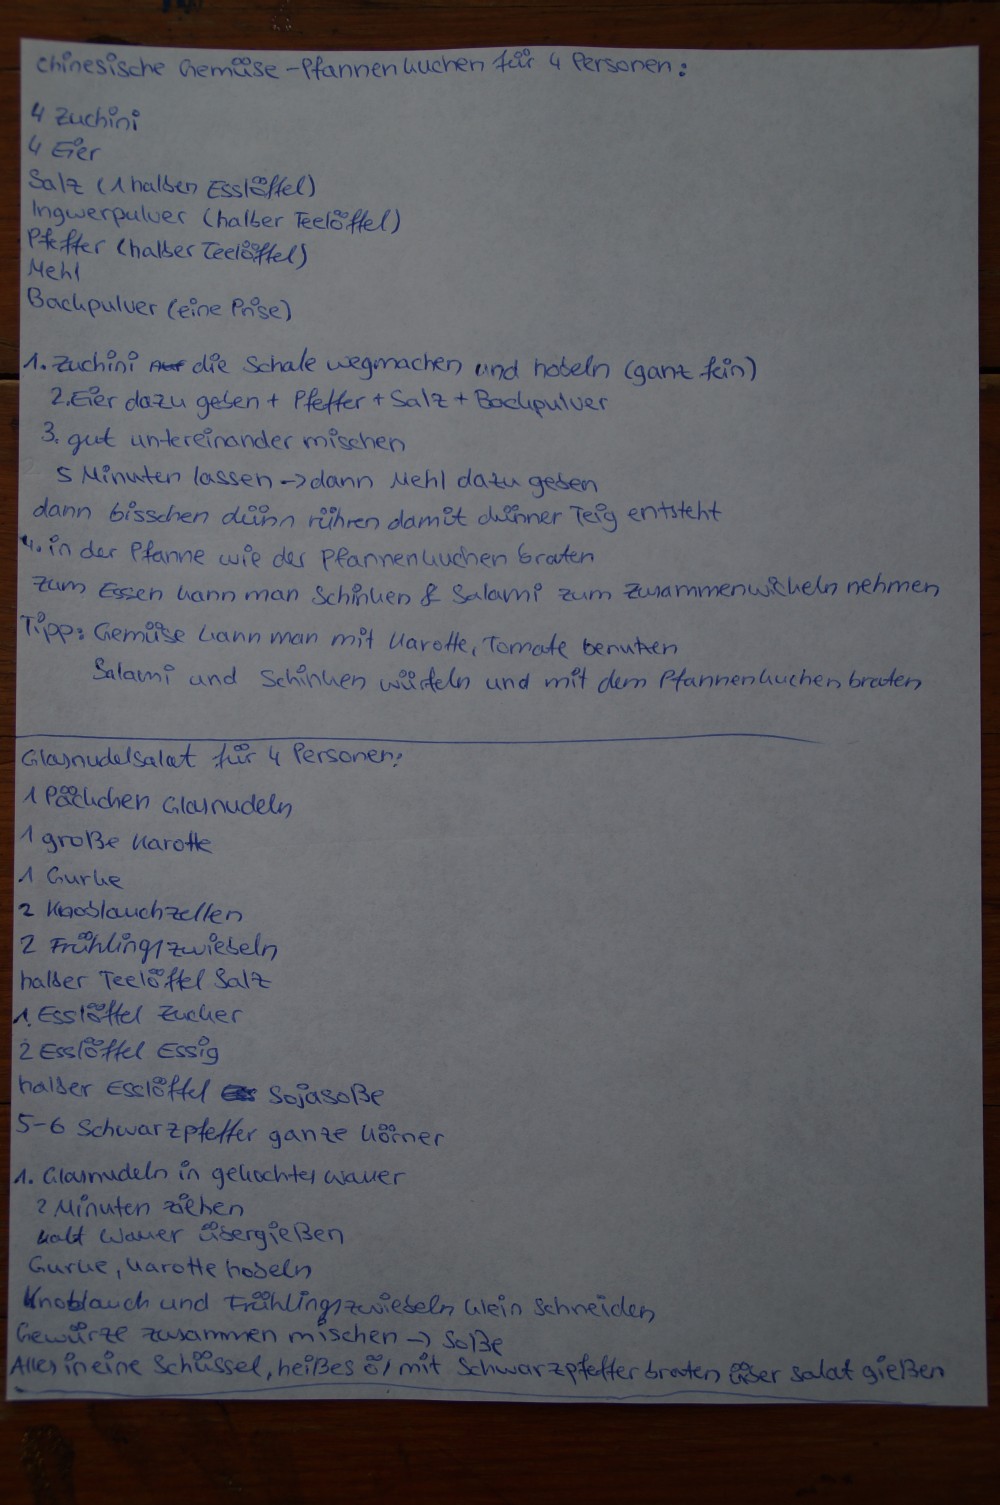 Chinesische Gemüse-Pfannenkuchen für 4 Personen:
4 Zuchini
4 Eier
Salz (1 halben Esslöffel)
Ingwerpulver (halber Teelöffel)
Pfeffer (halber Teelöffel)
Mehl
Backpulver (eine Prise)
1. Zuchini die Schale wegmachen und hobeln (ganz fein)
2. Eier dazu geben + Pfeffer + Salz + Backpulver
3. gut untereinander mischen
5 Minuten lassen → dann Mehl dazu geben
dann bisschen dünn rühren damit dünner Teig entsteht
4. in der Pfanne wie der Pfannenkuchen braten
zum Essen kann man Schinken & Salami zum Zusammenwickeln nehmen
Tipp: Gemüse kann man mit Karotte, Tomate benutzen
Salami und Schinken würfeln und mit dem Pfannenkuchen braten
Glasnudelsalat für 4 Personen:
1 Päckchen Glasnudeln
1 große Karotte
1 Gurke
2 Knoblauchzellen
2 Frühlingszwiebeln
halber Teelöffel Salz
1. Esslöffel Zucker
2 Esslöffel Essig
halber Esslöffel Sojasoße
5-6 Schwarzpfeffer ganze Körner
1. Glasnudeln in gekochtes Wasser
2 Minuten ziehen
kalt Wasser übergießen
Gurke, Karotte hobeln
Knoblauch und Frühlingszwiebeln klein schneiden
Gewürze zusammen mischen → Soße
Alles in eine Schüssel, heißes Öl mit Schwarzpfeffer braten über Salat gießen